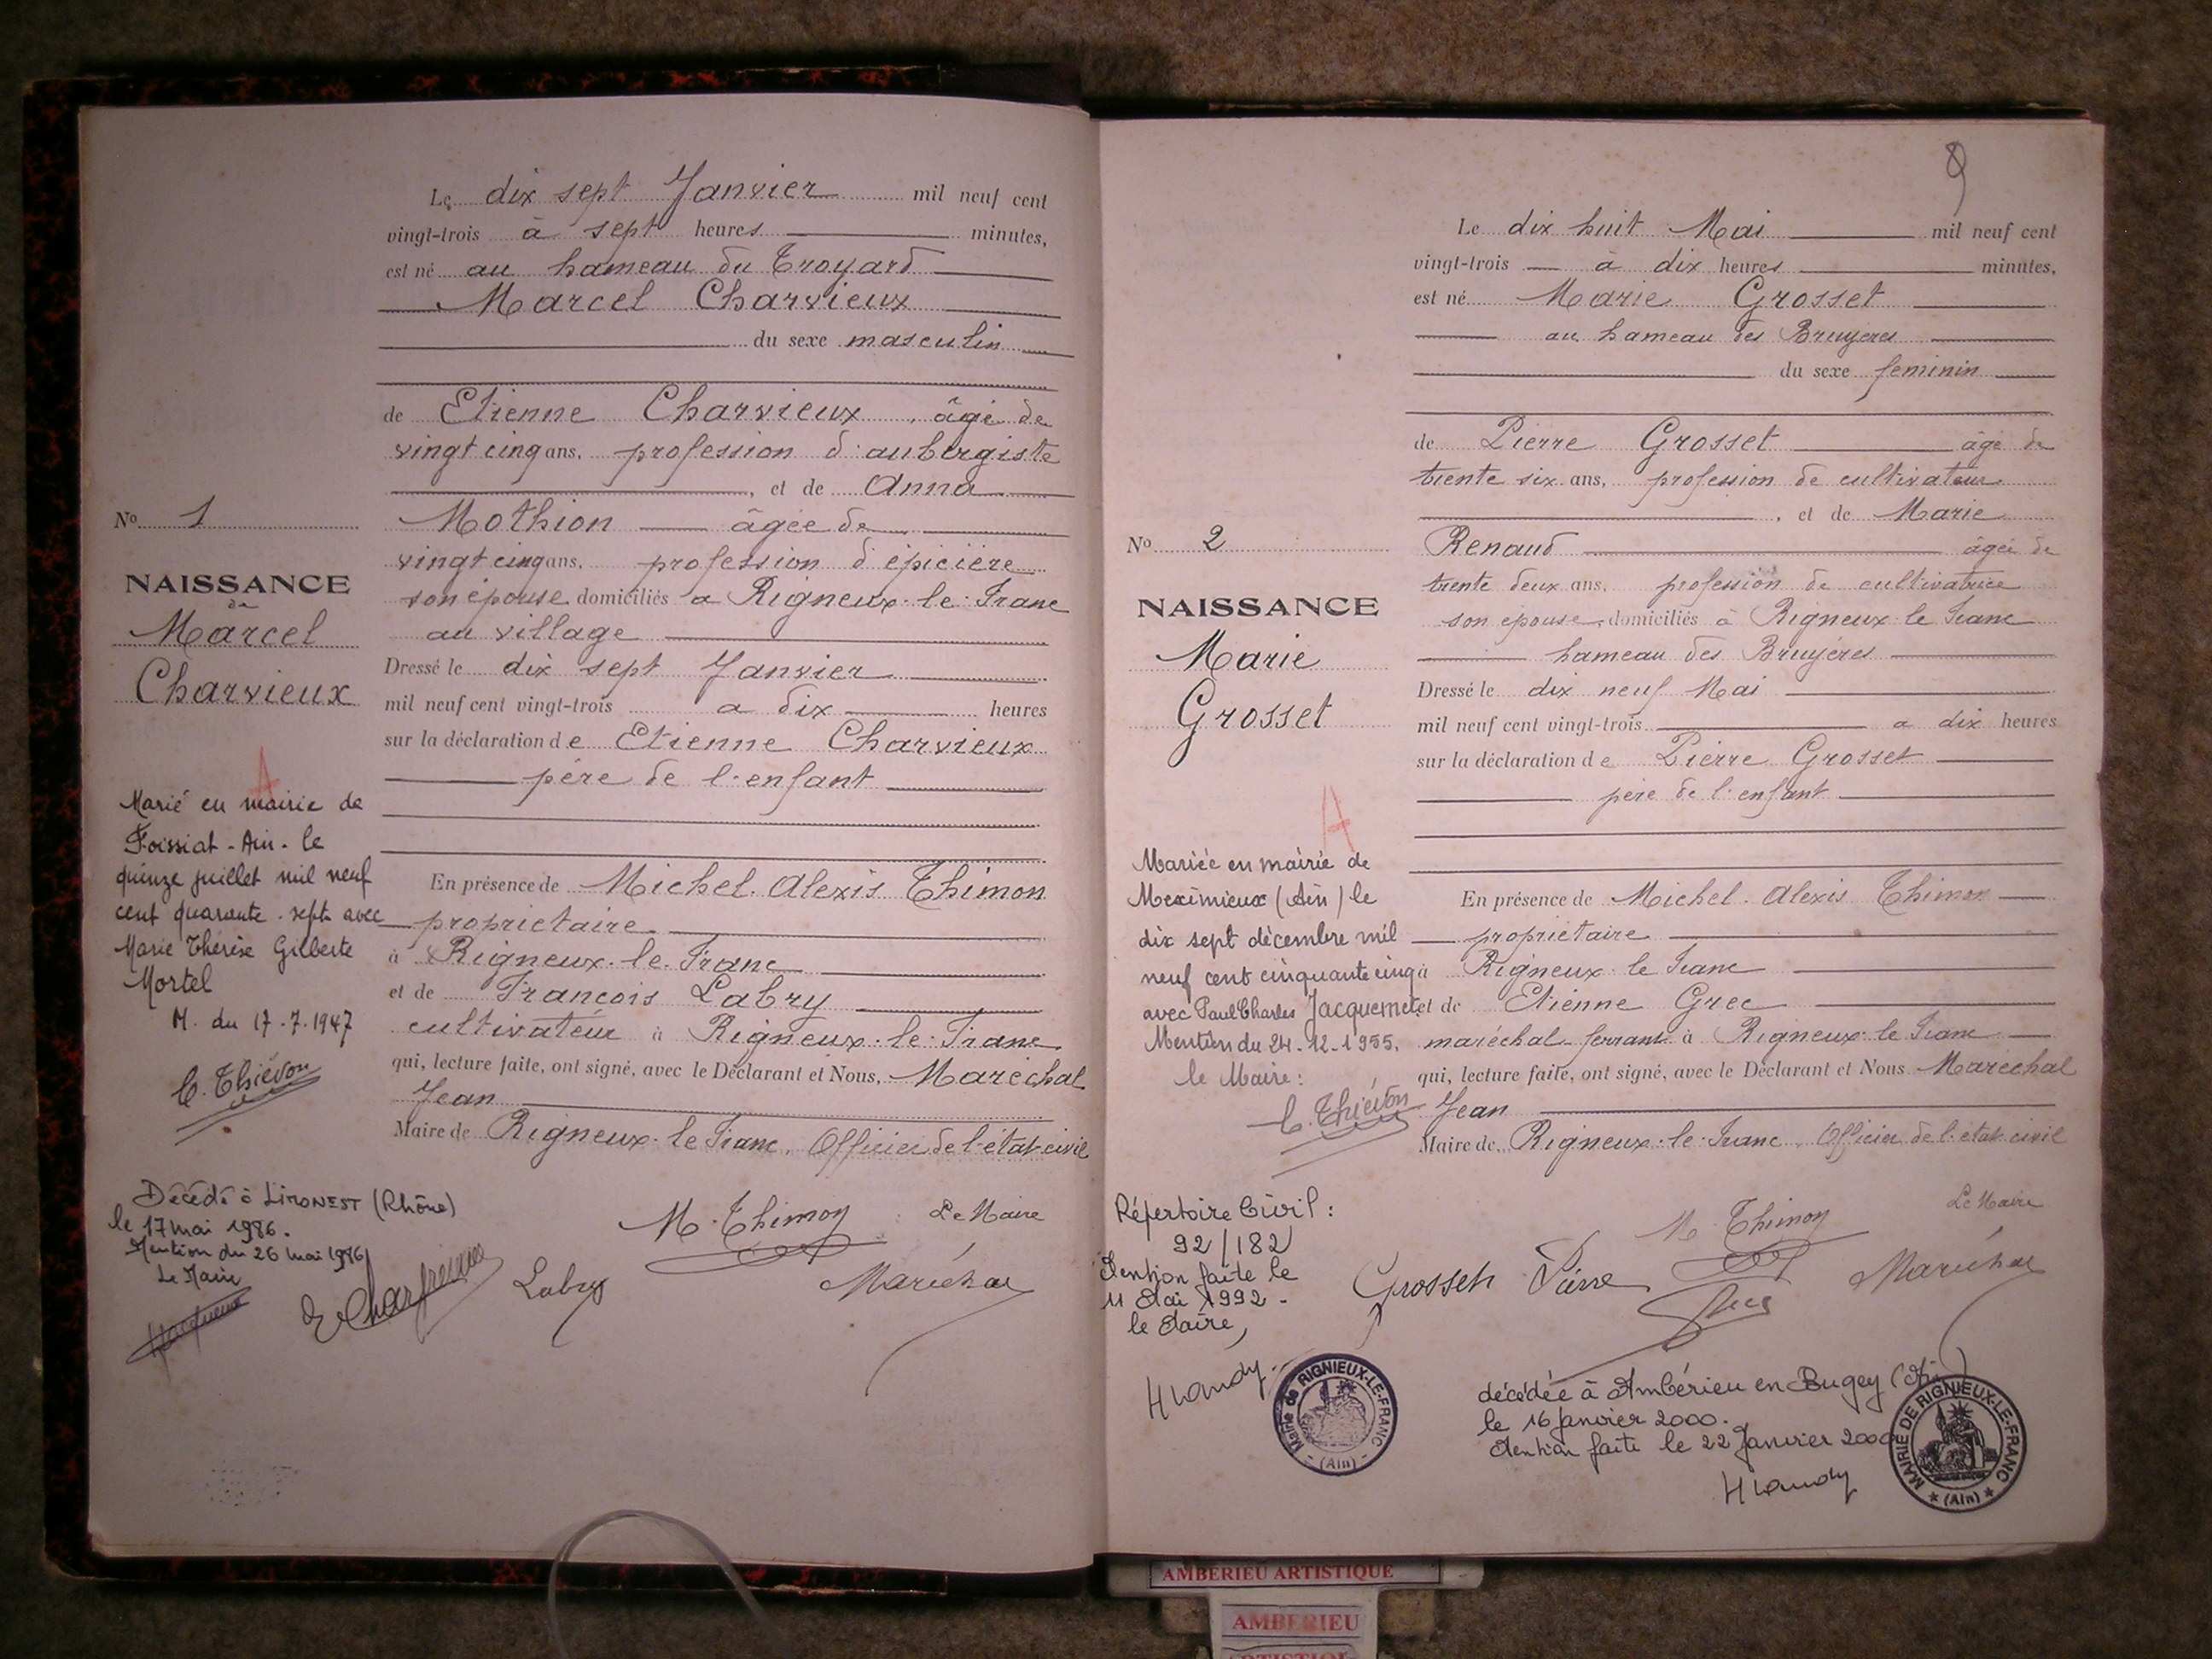 Le dix sept Janvier mil neuf cent
vingt-trois à sept heures minutes,
est né au hameau du Troyard
Marcel Charvieux
du sexe masculin
de Etienne Charvieux, âgé de
vingt cinq ans, profession d'aubergiste
, et de Anna
Mothion âgée de
vingt cinq ans, profession d'épicière
son épouse domiciliés a Rigneux-le-Franc
au village
Dressé le dix sept Janvier
mil neuf cent vingt-trois a dix heures
sur la déclaration de Etienne Charvieux
père de l'enfant
En présence de Michel Alexis Thimon
propriétaire
à Rigneux-le-Franc
et de François Labry
cultivateur à Rigneux-le-Franc
qui, lecture faite, ont signé, avec le Déclarant et Nous, Maréchal
Jean
Maire de Rigneux-le-Franc, Officier de l'état-civil
No 1
NAISSANCE
de
Marcel
Charvieux
A
Marié en mairie de
Foissiat - Ain - le
quinze juillet mil neuf
cent quarante-sept avec
Marie Thérèse Gilberte
Mortel
M. du 17-7-1947
C. Thiévon
Décédé à LIMONEST (Rhône)
le 17 mai 1986.
Mention du 26 mai 1986
Le Maire
M. Thimon
Le Maire
Labry
Maréchal
9
Le dix huit Mai mil neuf cent
vingt-trois à dix heures minutes,
est né Marie Grosset
au hameau des Bruyeres
du sexe feminin
de Pierre Grosset âgé de
trente six ans, profession de cultivateur
, et de Marie
Renaud âgée de
trente deux ans, profession de cultivatrice
son épouse, domiciliés à Rigneux-le Franc
hameau des Bruyéres
Dressé le dix neuf Mai
mil neuf cent vingt-trois a dix heures
sur la déclaration de Pierre Grosset
père de l'enfant
En présence de Michel Alexis Thimon
propriétaire
à Rigneux le Franc
et de Etienne Grec
maréchal-ferrant à Rigneux le Franc
qui, lecture faite, ont signé, avec le Déclarant et Nous Maréchal
Jean
Maire de Rigneux-le-Franc, Officier de l'état-civil
No 2
NAISSANCE
Marie
Grosset
A
Mariée en mairie de
Meximieux (Ain) le
dix sept décembre mil
neuf cent cinquante cinq
avec Paul Charles Jacquemet
Mention du 24-12-1955.
le Maire:
C. Thiévon
Répertoire Civil:
92/182
Mention faite le
11 Mai 1992.
le Maire,
Mairie de RIGNIEUX-LE-FRANC
(Ain)
M. Thimon
Le Maire
Grosset Pierre
Maréchal
décédée à Ambérieu en Bugey (Ain)
le 16 Janvier 2000.
Mention faite le 22 Janvier 2000
MAIRIE DE RIGNIEUX-LE-FRANC
(Ain)
AMBERIEU ARTISTIQUE
AMBERIEU
ARTISTIQUE